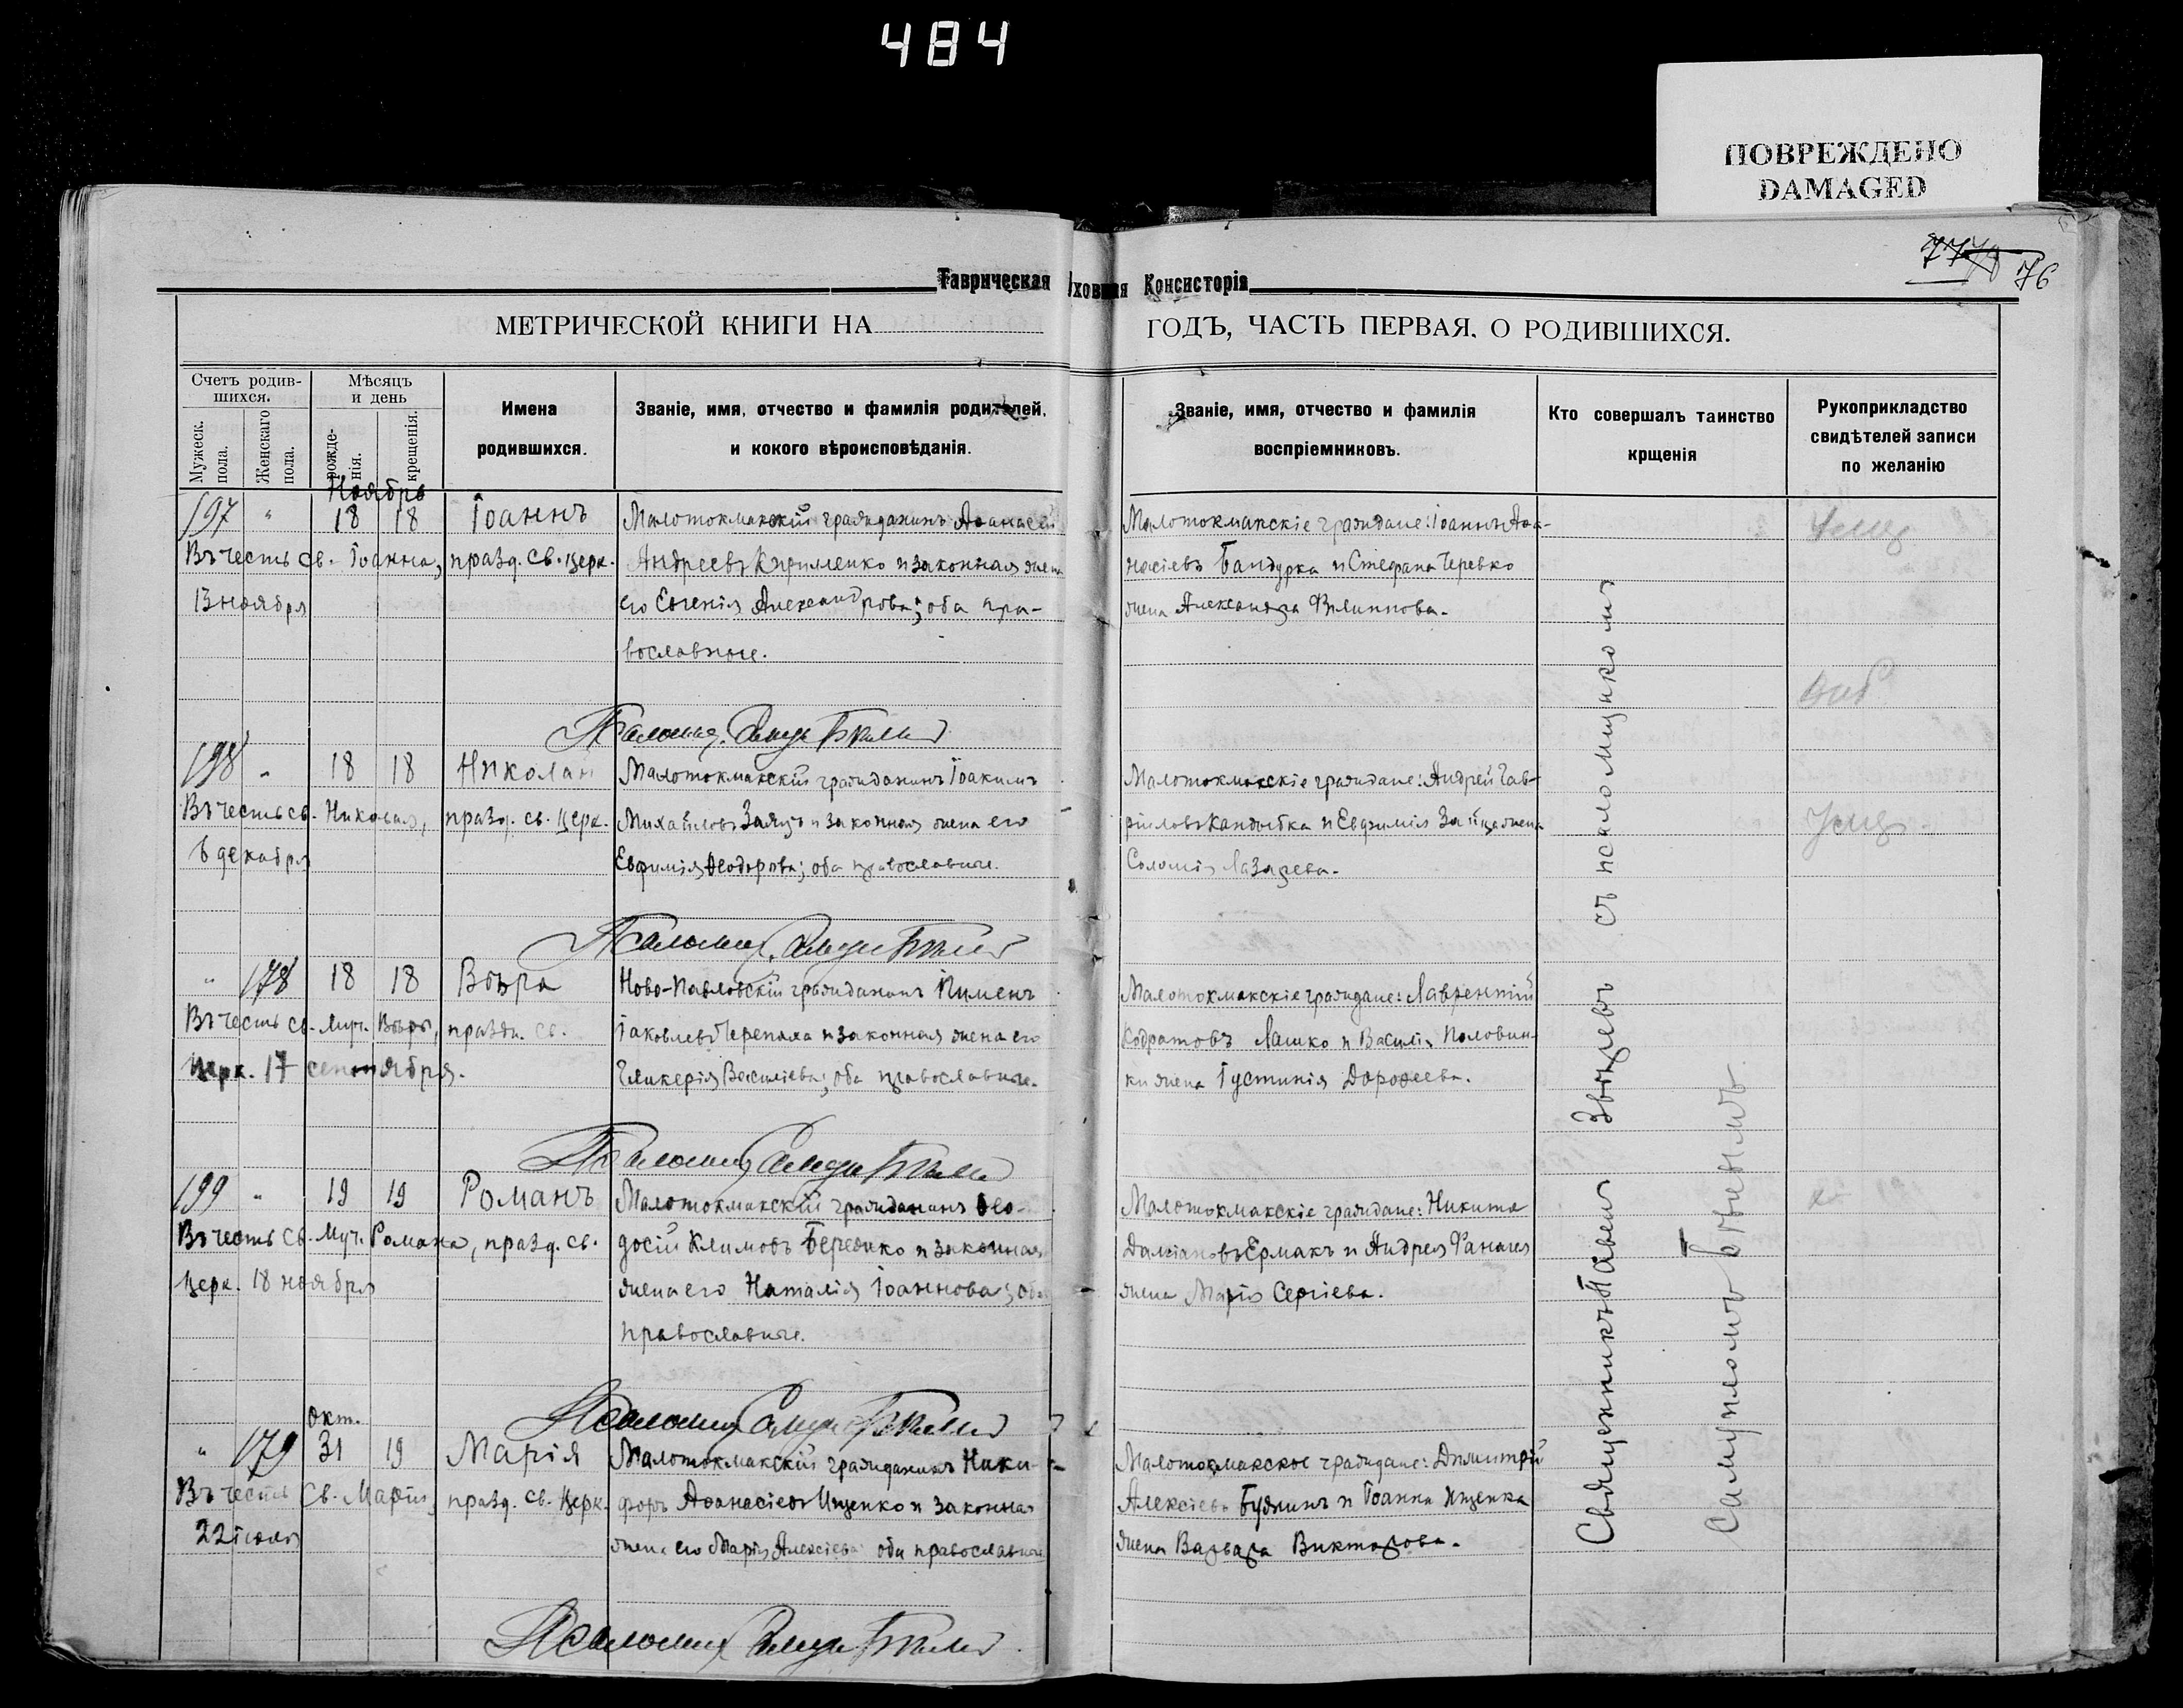 484
ПОВРЕЖДЕНО
DAMAGED
76
Таврическая Духовная Консисторія
МЕТРИЧЕСКОЙ КНИГИ НА ГОДЪ, ЧАСТЬ ПЕРВАЯ, О РОДИВШИХСЯ.
Счетъ родив-
шихся.
Мужеск.
пола.
Женскаго
пола.
Мѣсяцъ
и день
рожде-
нія.
крещенія.
Имена
родившихся.
Званіе, имя, отчество и фамилія родителей,
и кокого вѣроисповѣданія.
Званіе, имя, отчество и фамилія
воспріемниковъ.
Кто совершалъ таинство
крщенія
Рукоприкладство
свидѣтелей записи
по желанію
Ноябрь
197 " 18 18 Іоаннъ
Въ честь св. Іоанна, празд. св. церк.
13 ноября
Малотокмакскій гражданинъ Аѳанасій
Андреевъ Кириленко и законная жена
его Евгенія Александрова; оба пра-
вославные.
Малотокмакскіе граждане: Іоаннъ Аѳа-
насіевъ Бандурка и Стефана Черевко
жена Александра Филиппова.
Псаломщ.
198 " 18 18 Николай
Въ честь св. Николая, празд. св. церк.
6 декабря
Малотокмакскій гражданинъ Іоакимъ
Михайловъ Заяцъ и законная жена его
Евфимія Ѳеодорова; оба православные.
Малотокмакскіе граждане: Андрей Гав-
ріиловъ Кандыбка и Евфимія Зайца жена
Соломія Лазарева.
Псаломщ.
" 178 18 18 Вѣра
Въ честь св. муч. Вѣры, праздн. св.
церк. 17 сентября.
Ново-Павловскій гражданинъ Пименъ
Іаковлевъ Черепаха и законная жена его
Гликерія Василіева; оба православные.
Малотокмакскіе граждане: Лаврентій
Кодратовъ Лашко и Василія Половин-
ки жена Іустинія Дороѳеева.
Псаломщ.
199 " 19 19 Романъ
Въ честь св. муч. Романа, празд. св.
церк. 18 ноября
Малотокмакскій гражданинъ Ѳео-
досій Климовъ Береѳко и законная
жена его Наталія Іоаннова; оба
православные.
Малотокмакскіе граждане: Никита
Даміановъ Ермакъ и Андрея Фанася
жена Марія Сергіева.
Псаломщ.
окт.
" 179 31 19 Марія
Въ честь св. Маріи, празд. св. церк.
22 іюля
Малотокмакскій гражданинъ Ники-
форъ Аѳанасіевъ Ищенко и законная
жена его Марія Алексіева оба православные
Малотокмакское граждане: Димитрій
Алексіевъ Бужинъ и Іоанна Ищенка
жена Варвара Викторова.
Псаломщ.
Священникъ Павелъ Звѣревъ съ псаломщикомъ